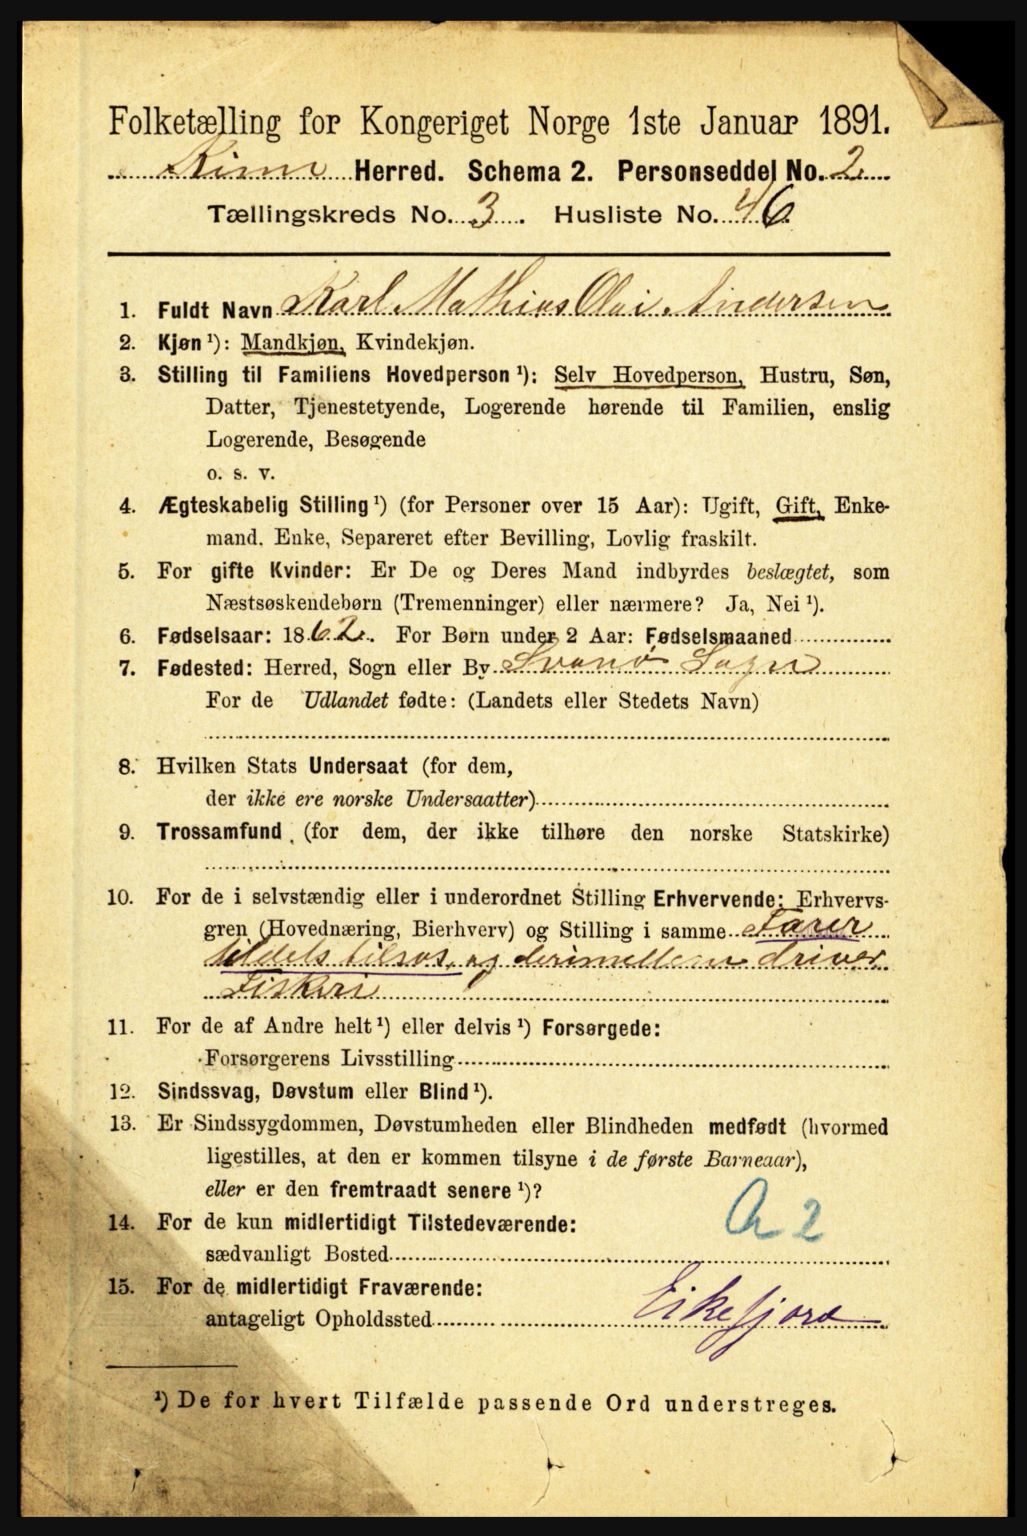 Folketælling for Kongeriget Norge 1ste Januar 1891.
Kinn Herred. Schema 2. Personseddel No. 2.
Tællingskreds No. 3. Husliste No. 46
1. Fuldt Navn Karl Mathias Olai Andersen
2. Kjøn ¹): Mandkjøn, Kvindekjøn.
3. Stilling til Familiens Hovedperson ¹): Selv Hovedperson, Hustru, Søn,
Datter, Tjenestetyende, Logerende hørende til Familien, enslig
Logerende, Besøgende
o. s. v.
4. Ægteskabelig Stilling ¹) (for Personer over 15 Aar): Ugift, Gift, Enke-
mand, Enke, Separeret efter Bevilling, Lovlig fraskilt.
5. For gifte Kvinder: Er De og Deres Mand indbyrdes beslægtet, som
Næstsøskendebørn (Tremenninger) eller nærmere? Ja, Nei ¹).
6. Fødselsaar: 1862. For Børn under 2 Aar: Fødselsmaaned
7. Fødested: Herred, Sogn eller By Svanø Sogn
For de Udlandet fødte: (Landets eller Stedets Navn)
8. Hvilken Stats Undersaat (for dem,
der ikke ere norske Undersaatter)
9. Trossamfund (for dem, der ikke tilhøre den norske Statskirke)
10. For de i selvstændig eller i underordnet Stilling Erhvervende: Erhvervs-
gren (Hovednæring, Bierhverv) og Stilling i samme Farer
tildels tilsøs, og derimellem driver
Fiskeri
11. For de af Andre helt ¹) eller delvis ¹) Forsørgede:
Forsørgerens Livsstilling
12. Sindssvag, Døvstum eller Blind ¹).
13. Er Sindssygdommen, Døvstumheden eller Blindheden medfødt (hvormed
ligestilles, at den er kommen tilsyne i de første Barneaar),
eller er den fremtraadt senere ¹)?
14. For de kun midlertidigt Tilstedeværende:
a 2
sædvanligt Bosted
15. For de midlertidigt Fraværende:
antageligt Opholdssted Eikefjord
¹) De for hvert Tilfælde passende Ord understreges.